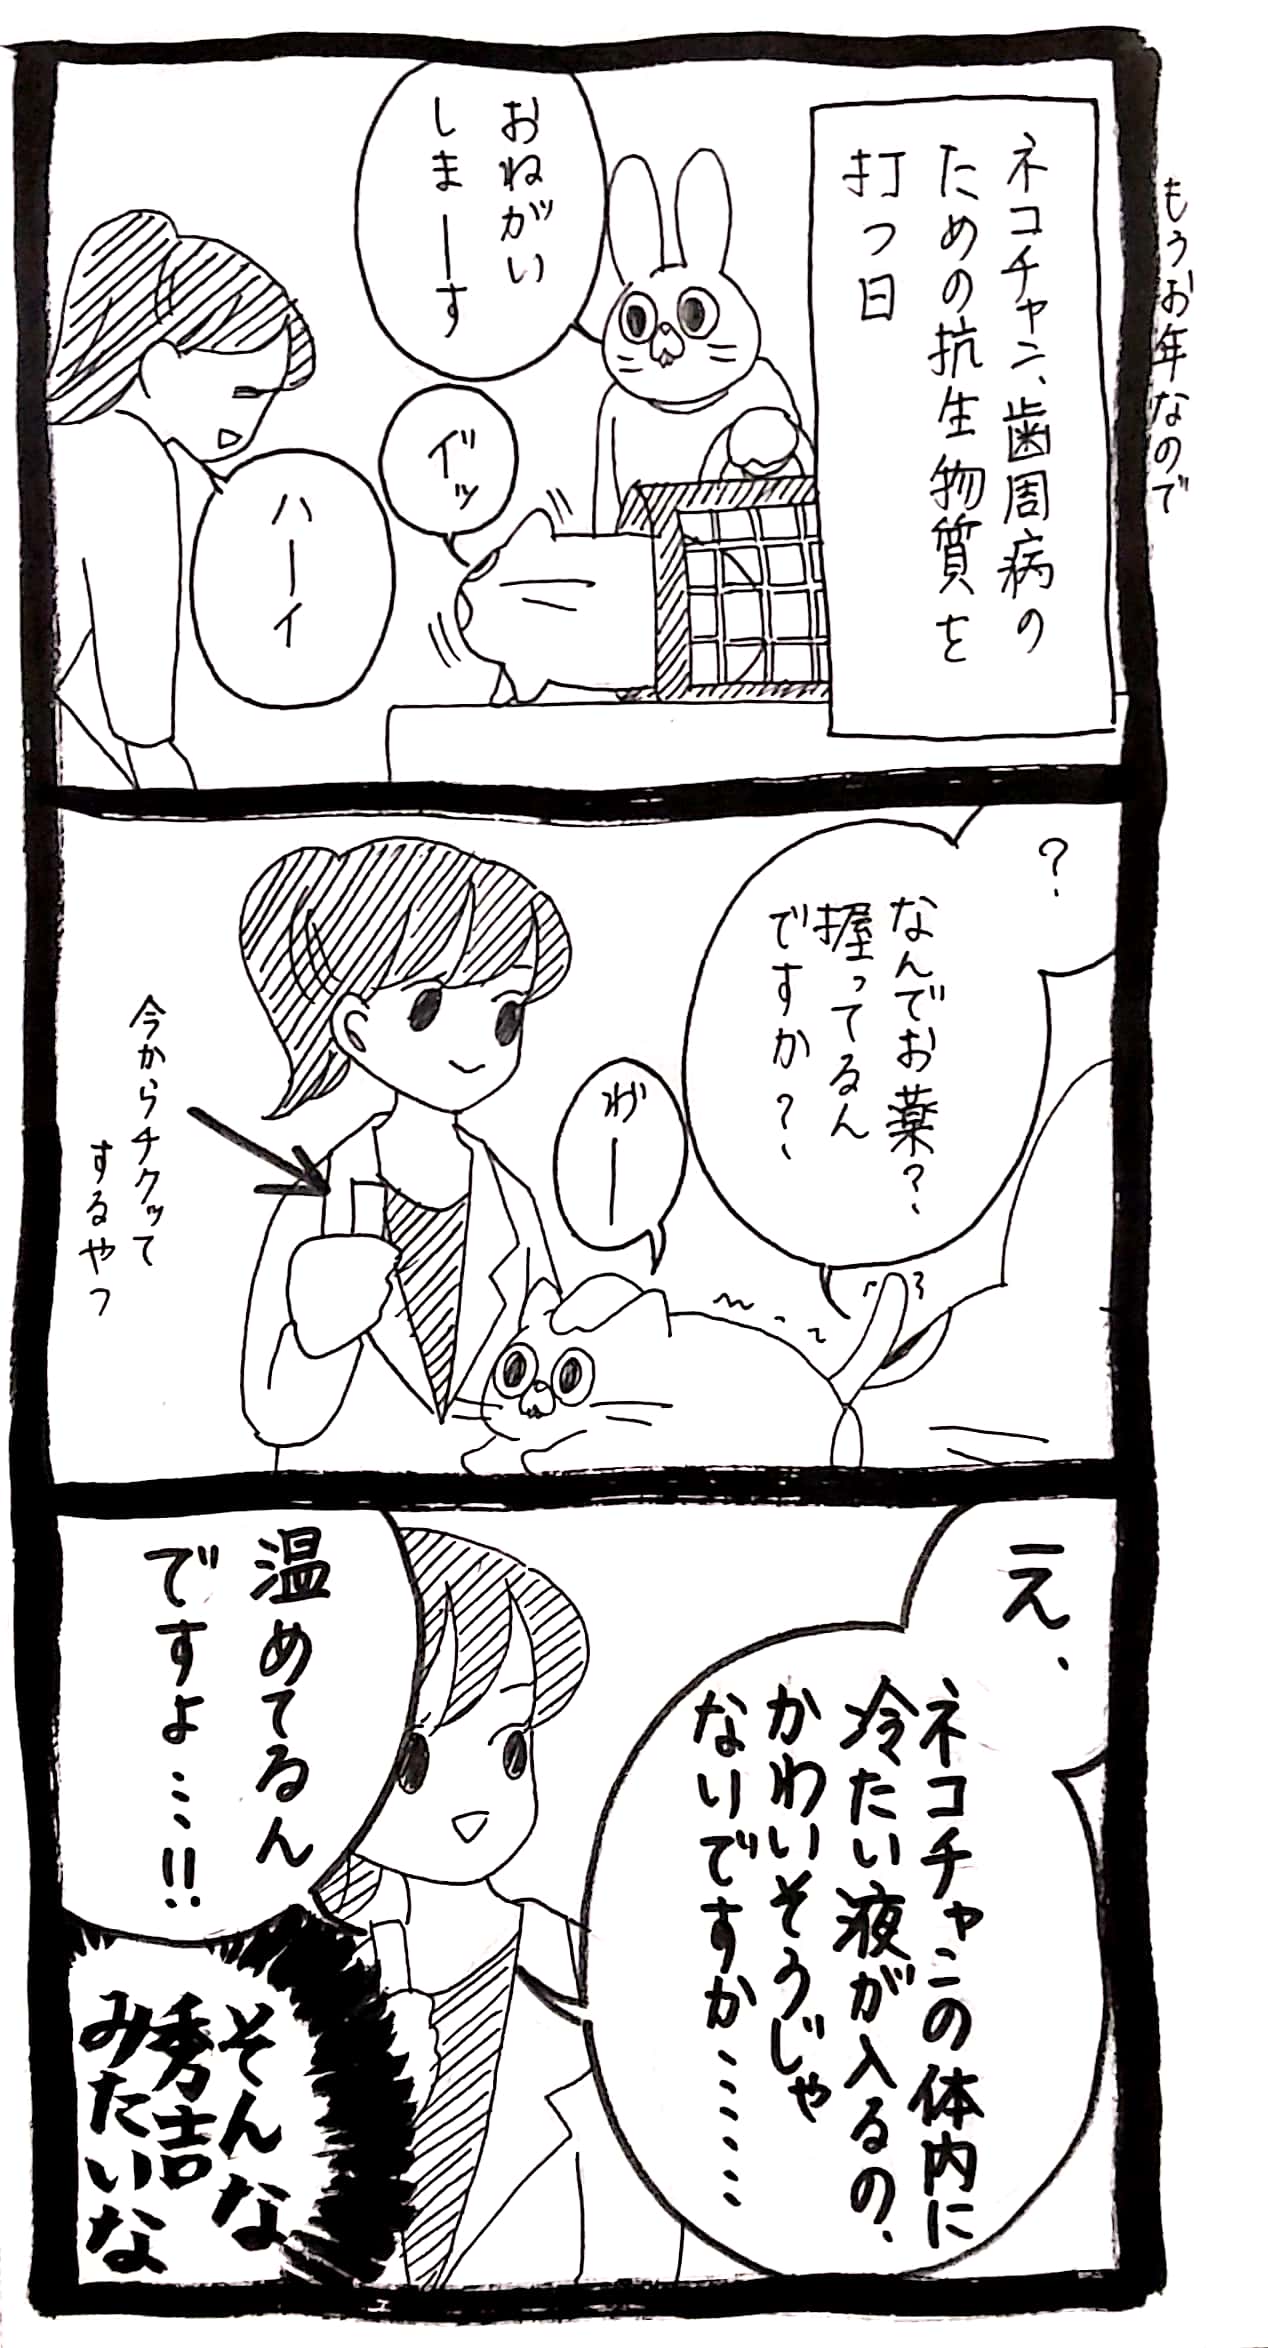 もうお年なので
ネコチャン、歯周病の
ための抗生物質を
打つ日
おねがい
しまーす
イ゛ッ
ハーイ
?
なんでお薬?、
握ってるん
ですか?、
わ゛ー
今からチクッて
するやつ
え、
ネコチャンの体内に
冷たい液が入るの、
かわいそうじゃ
ないですか……
温めてるん
ですよ…!!
そんな
秀吉
みたいな